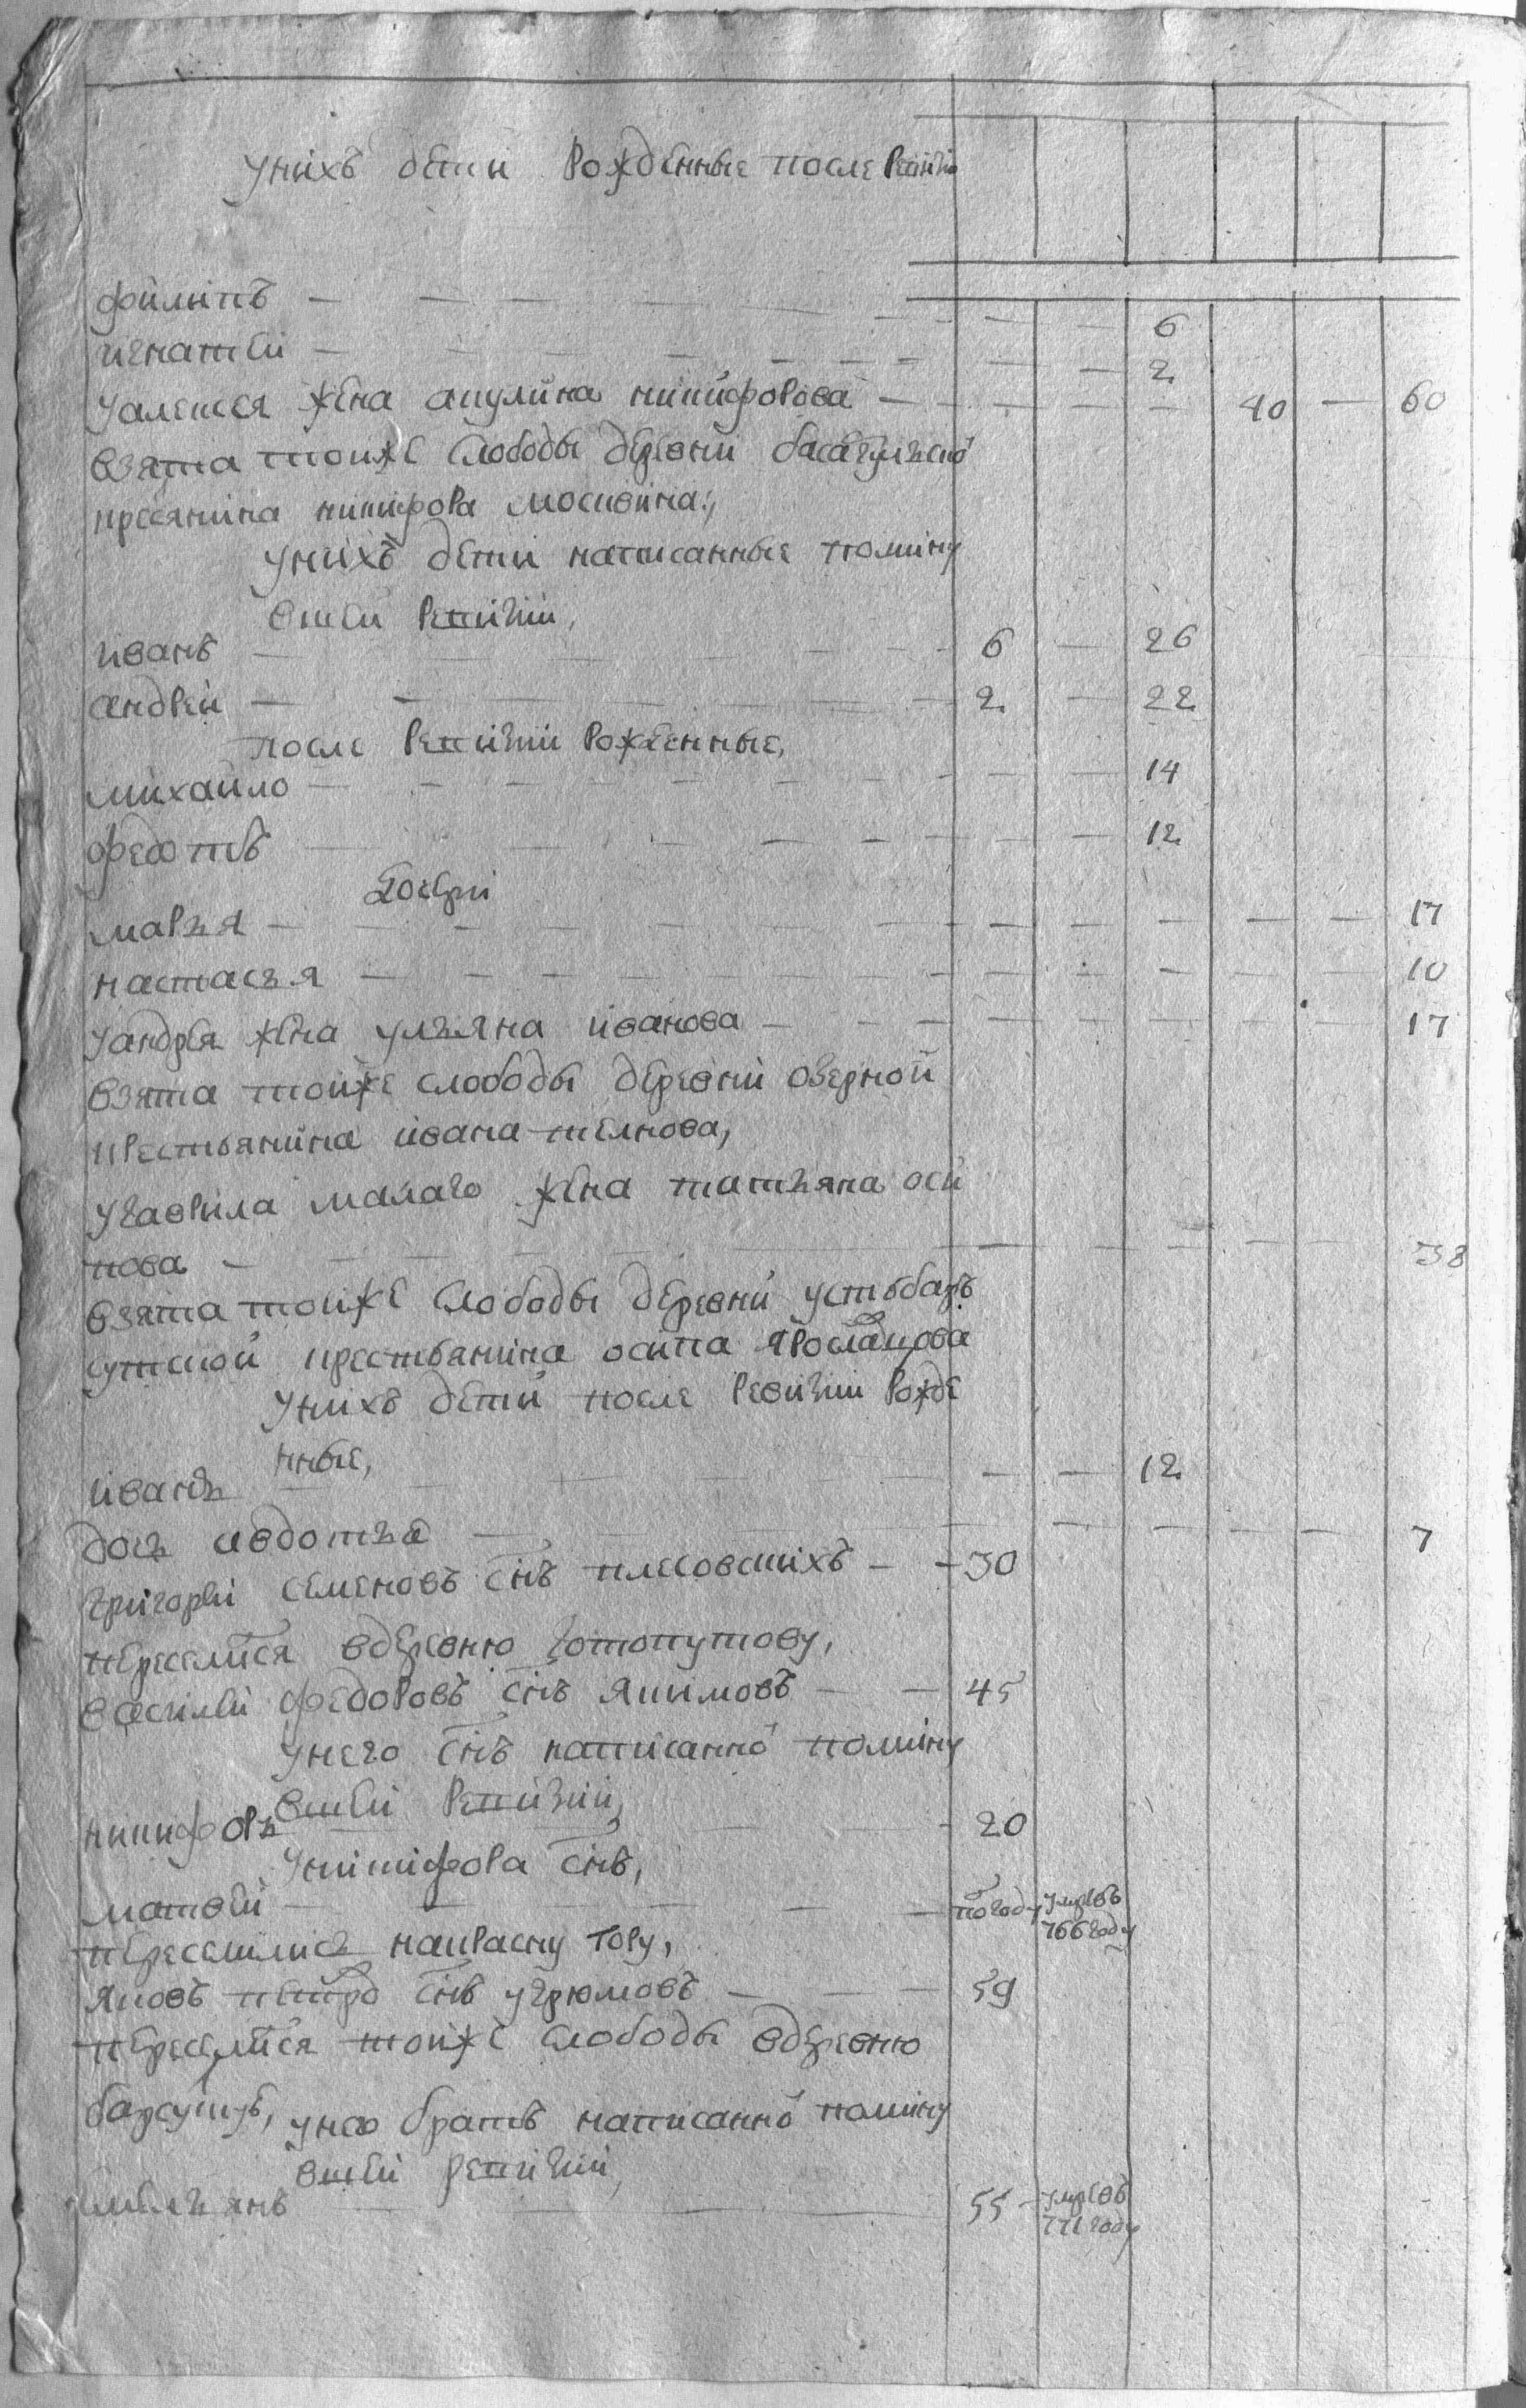 унихъ дети рожденные после ревизи
филипъ — — — — — — 6
игнатеи — — — — — — 2
уалексея жена акулина никифорова — — — — 40 — 60
взята тоиже слободы деревни
кресянина никифора москвина:,
унихъ дети написанные помину
вшеи ревизии,
иванъ — — — 6 — 26
андреи — — — 2 — 22
после ревизии рожденные,
михаило — — — — 14
федотъ — — — — 12
дочери
марья — — — — — 17
настасья — — — — — 10
уандрея жена ульяна иванова — — — — 17
взята тоиже слободы деревни озерной
крестьянина ивана телнова,
угаврила малаго жена татьяна оси
пова — — — — — 38
взята тоиже слободы деревни устьбар
сутской крестьянина осипа ярославцова
унихъ дети после ревизии рожде
нные,
иванъ — — — — 12
дочь авдотья — — — — — 7
григореи семеновъ снъ плесовскихъ — — 30
переселился вдеревню готопутову,
василеи федоровъ снъ якимовъ — — 45
унего снъ написанно помину
вшеи ревизии,
никифоръ — — — 20
уникифора снъ,
матвеи — — — погоду умре въ
766 году
переселились накрасну гору,
яковъ петро снъ угрюмовъ — — — 59
переселился тоиже слободы вдеревню
барсучью, унего братъ написанно помину
вшеи ревизии,
емельянъ — — — 55 — умре въ
771 году